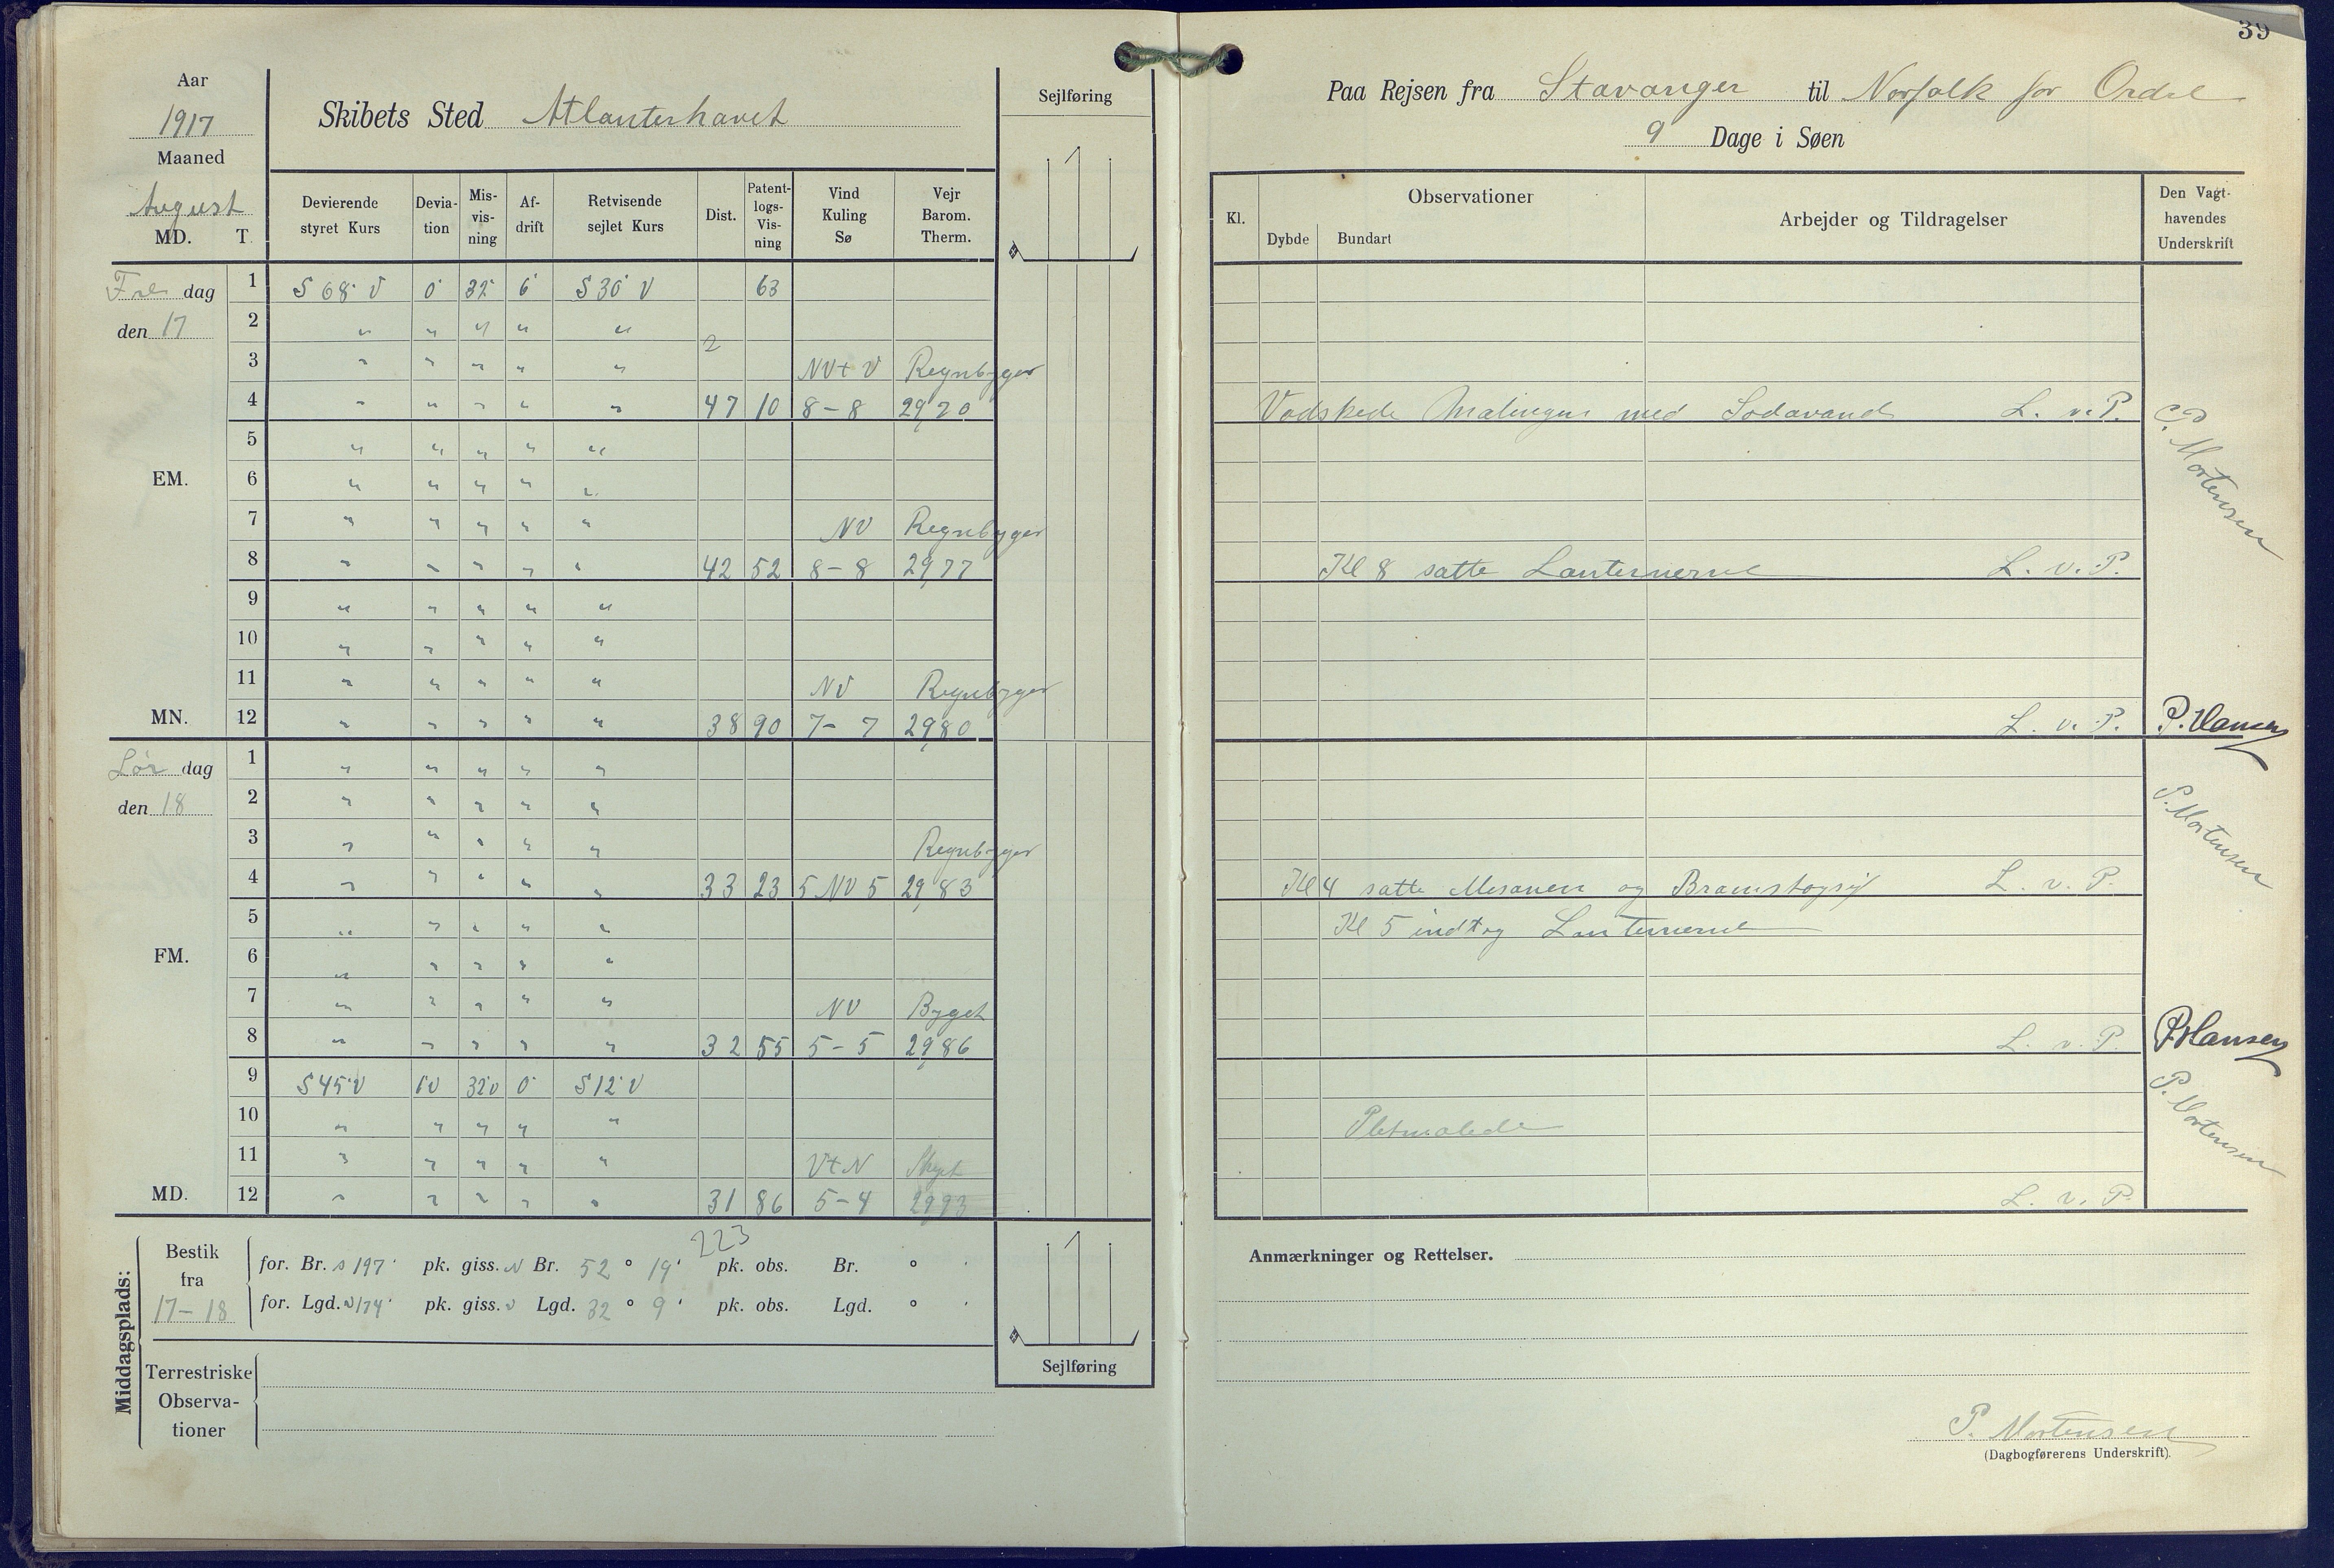 39
Aar
1917
Maaned
August
MD. T.
Skibets Sted Atlanterhavet
Sejlføring
Devierende styret Kurs
Devia-tion
Mis-vis-ning
Af-drift
Retvisende sejlet Kurs
Dist.
Patent-logs-Vis-ning
Vind Kuling Sø
Vejr Barom. Therm.
Fre dag
den 17
1 S 68° V 0° 32° 6° S 30° V 63
2 " " " " "
2
3 " " " " " NVtV Regnbyger
4 " " " " " 47 10 8-8 29,70
5 " " " " "
EM.
6 " " " " "
7 " " " " " NV Regnbyger
8 " " " " " 42 52 8-8 29,77
9 " " " " "
10 " " " " "
11 " " " " " NV Regnbyger
MN.
12 " " " " " 38 90 7-7 29,80
Lør dag
den 18
1 " " " " "
2 " " " " "
3 " " " " " Regnbyger
4 " " " " " 33 23 5 NV 5 29,83
5 " " " " "
FM.
6 " " " " "
7 " " " " " NV Byget
8 " " " " " 32 55 5-5 29,86
9 S 45° V 1°V 32°V 0° S 12° V
10 " " " " "
11 " " " " " VtN
MD.
12 " " " " " 31 86 5-4 2993
Middagsplads:
Bestik fra 17-18
223
for. Br. S 197' pk. giss. N Br. 52 ° 19' pk. obs. Br. ° '
for. Lgd. V 174' pk. giss. V Lgd. 32 ° 9' pk. obs. Lgd. ° '
Terrestriske Observa-tioner
Sejlføring
Paa Rejsen fra Stavanger til Norfolk for Ordre
9 Dage i Søen
Kl.
Observationer
Dybde Bundart
Arbejder og Tildragelser
Den Vagt-havendes Underskrift
Vadskede Malingen med Sodavand L. v. P.
P. Mortensen
Kl 8 satte Lanternerne L. v. P.
L. v. P. P. Hansen
P. Mortensen
Kl 4 satte Mesanen og Bramstagsejl L. v. P.
Kl 5 indtog Lanternerne
L. v. P. P Hansen
P. Mortensen
Pletmalede
L. v. P.
Anmærkninger og Rettelser.
P. Mortensen
(Dagbogførerens Underskrift).